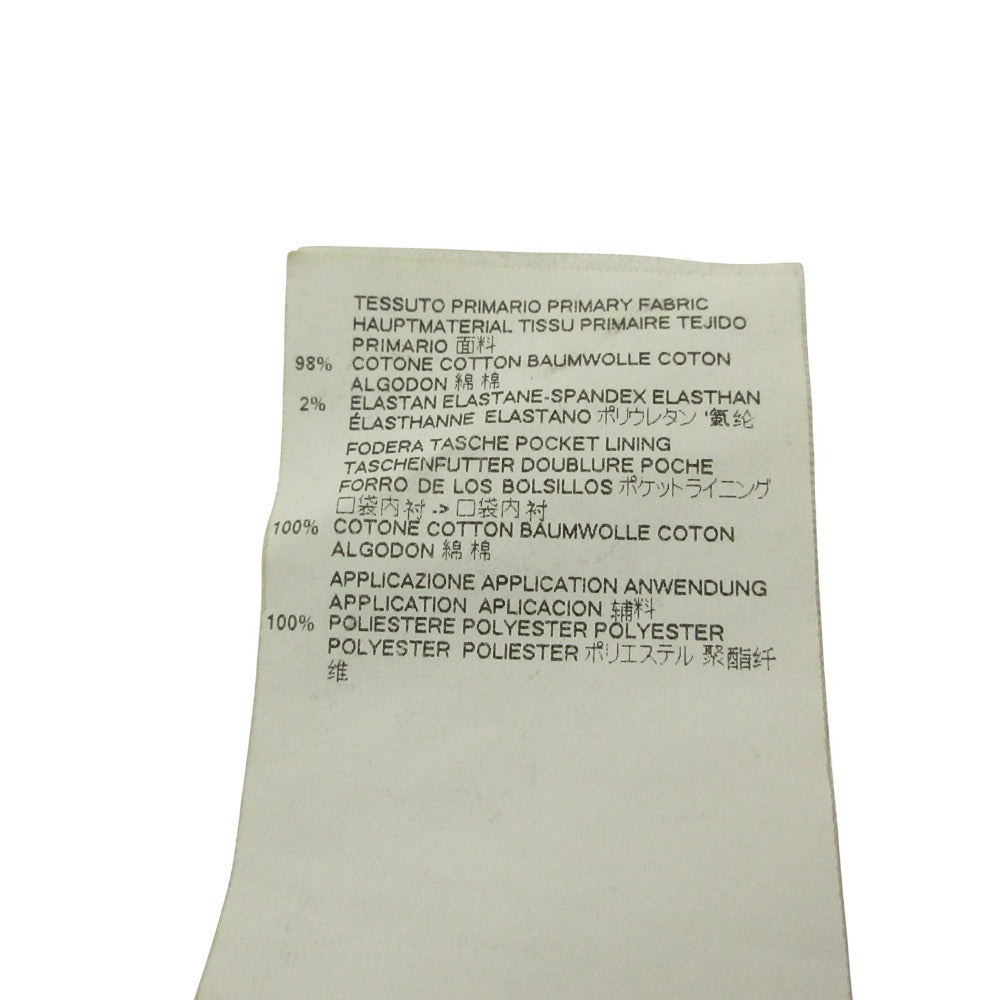 TESSUTO PRIMARIO PRIMARY FABRIC
HAUPTMATERIAL TISSU PRIMAIRE TEJIDO
PRIMARIO 面料
98% COTONE COTTON BAUMWOLLE COTON
ALGODON 綿 棉
2% ELASTAN ELASTANE-SPANDEX ELASTHAN
ÉLASTHANNE ELASTANO ポリウレタン '氨纶
FODERA TASCHE POCKET LINING
TASCHENFUTTER DOUBLURE POCHE
FORRO DE LOS BOLSILLOS ポケットライニング
口袋内衬 -> 口袋内衬
100% COTONE COTTON BAUMWOLLE COTON
ALGODON 綿 棉
APPLICAZIONE APPLICATION ANWENDUNG
APPLICATION APLICACION 辅料
100% POLIESTERE POLYESTER POLYESTER
POLYESTER POLIESTER ポリエステル 聚酯纤
维